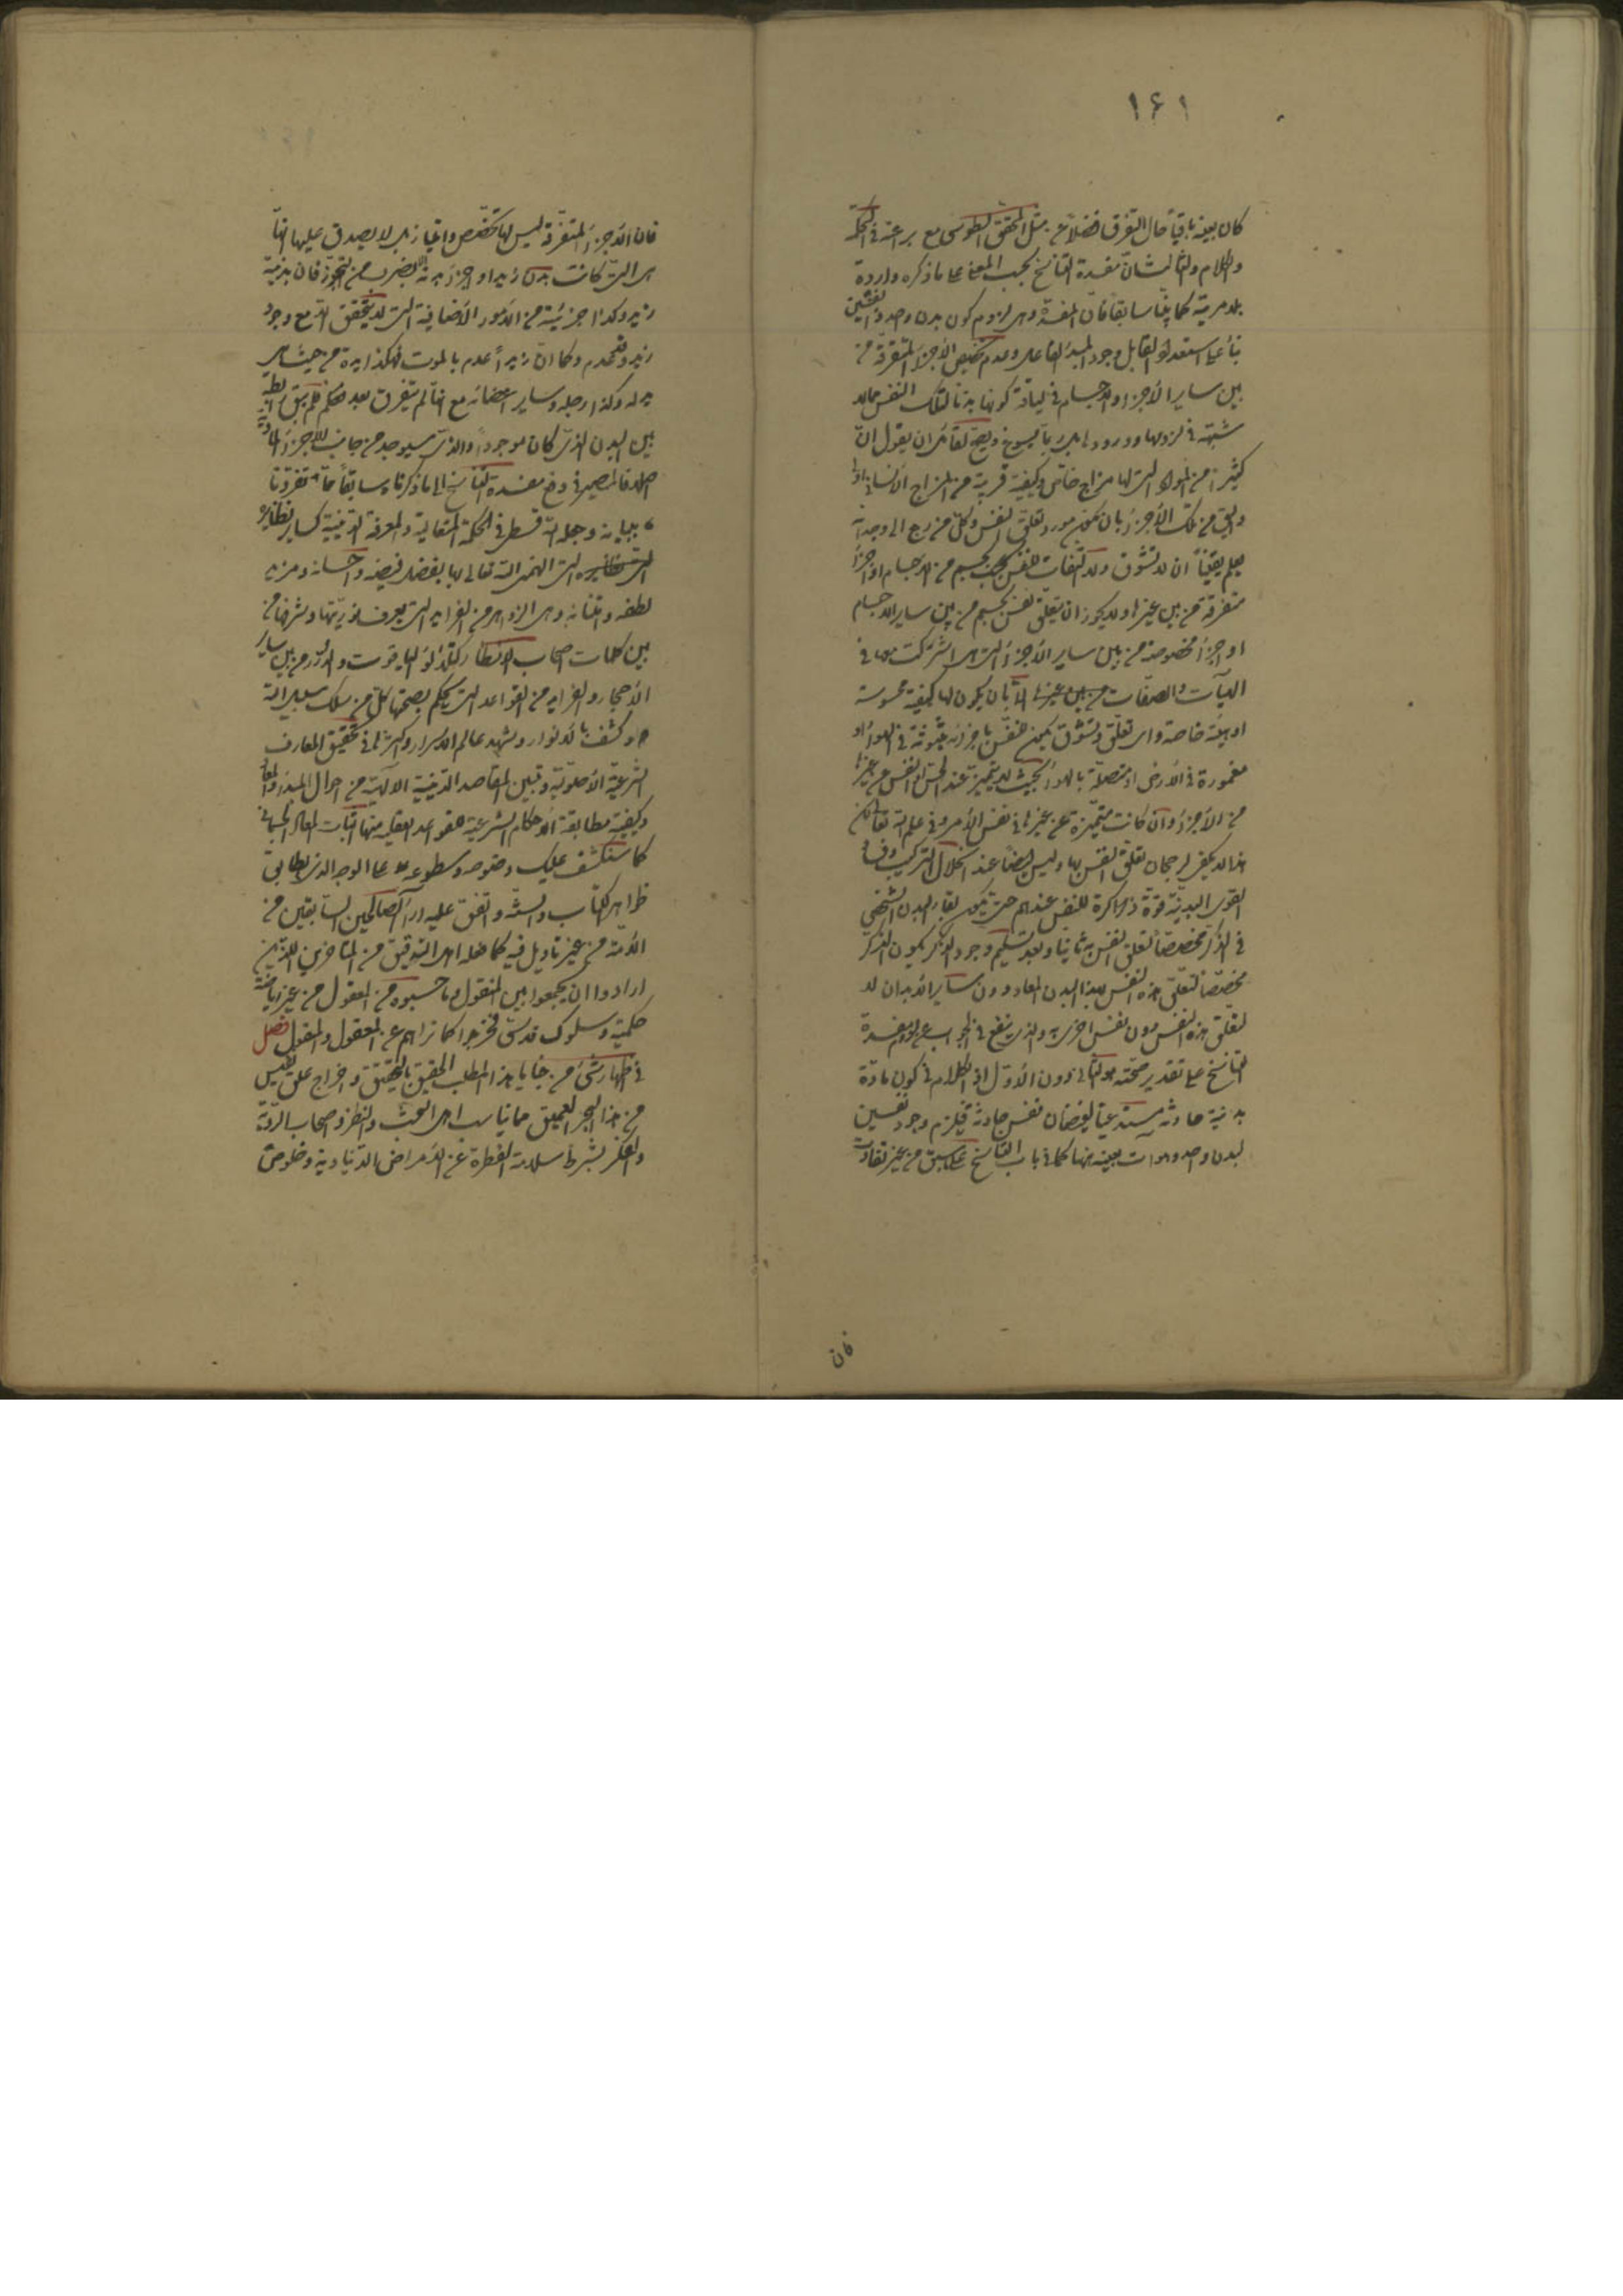 ١٦١
كان بعينه باقياً حال التفرق فضلاً عن مثل المحقق الطوسى مع براعته فى الحكمة
والكلام والثالث ان مفسدة التناسخ بحسب المعنى على ما ذكره واردة
بلا مرية كما بينا سابقا فان المفسدة وهى لزوم كون بدن واحد ذا نفسين
بناء على استعداد القابل وجود المبدأ الفاعلى وعدم تخصيص الأجزاء المتفرقة من
بين ساير الأجزاء والاجسام فى لياقة كونها بدنا لتلك النفس مما لا
شبهة فى لزومها وورودها بل ربما يسوغ ويصح لقائل ان يقول ان
كثيراً من المواد التى لها مزاج خاص وكيفية قريبة من المزاج الانسانى اولى
واليق من تلك الأجزاء بان يكون مورد تعلق النفس وكل من رجع الى وجدانه
يعلم يقيناً ان لا تشوق ولا التفات للنفس بجسم من الاجسام او اجزاء
متفرقة من بين غيرها ولا يجوز ان يتعلق نفس بجسم من بين ساير الاجسام
او اجزاء مخصوصة من بين ساير الأجزاء التى اشتركت معها فى
الهيآت والصفات من بين غيرها الا بان يكون لها كيفية محسوسة
او هيئة خاصة واى تعلق وتشوق يكون للنفس باجزاء مبثوثة فى الهواء او
مغمورة فى الأرض او متصلة بالهواء بحيث لا يتميز عند الحس او النفس عن غيرها
من الأجزاء وان كانت متميزة عن غيرها فى نفس الأمر وفى علم الله تعالى لكن
هذا لا يكفى لرجحان تعلق النفس بها وليس ايضاً عند انحلال التركيب وفساد
القوى البدنية قوة ذاكرة للنفس عندهم حتى يكون بقاء البدن الشخصى
فى الذكر مخصصاً لتعلق النفس به ثانيا وبعد تسليم وجود الذكر يكون الذكر
مخصصا لتعلق هذه النفس بهذا البدن المعاد دون ساير الابدان لا
لتعلق هذه النفس دون نفس اخرى به والذى ينفع فى الجواب عن لزوم مفسدة
التناسخ على تقدير صحته هو الثانى دون الأول اذ الكلام فى كون مادة
بدنية حادثة مستدعياً لفيضان نفس حادثة فيلزم وجود نفسين
لبدن واحد وهو آت بعينه ههنا كما فى باب التناسخ على ما سبق من غير تفاوت
فان
فان الأجزاء المتفرقة ليس لها تخصص وامتياز بل لا يصدق عليها انها
هى التى كانت بدن زيد او اجزاء بدنه الا بضرب من التجوز فان بدنية
زيد وكذا جزئيته من الأمور الأضافية التى لا يتحقق الا مع وجود
زيد وقد عدم وكما ان زيداً عدم بالموت فهكذا يده من حيث هى
يد له وكذا رجله وساير اعضائه مع انها لم يتفرق بعد فكم لم يبق رابطة
بين البدن الذى كان موجوداً والذى سيوجد من جانب الأجزاء المادية
اصلا فالمصير فى دفع مفسدة التناسخ الى ما ذكرناه سابقاً مما تفردنا
ببيانه وجعله الله قسطى فى الحكمة المتعالية والمعرفة اليقينية كساير نظايره
التى الهمنى الله تعالى بها بفضل فيضه واحسانه ومزيد
لطفه وامتنانه وهى الزواهر من الفرايد التى يعرف نوريتها وشرفها من
بين كلمات اصحاب الانظار كتلألؤ الياقوت والدر من بين ساير
الأحجار والفرايد من القواعد التى يحكم بصحتها كل من سلك سبيل الله
وكشف بالانوار وشهد عالم الاسرار واكثرها فى تحقيق المعارف
الشرعية الأصولية وتبين المقاصد الدينية الالهية من احوال المبدأ والمعاد
وكيفية مطابقة الأحكام الشرعية للقواعد العقلية منها اثبات المعاد الجسمانى
كما سنكشف عليك وضوحه وسطوعه على الوجه الذى يطابق
ظواهر الكتاب والسنة واتفق عليه آراء الصالحين السابقين من
الأمة من غير تاويل فيه كما فعله اهل التوفيق من المتأخرين الذين
ارادوا ان يجمعوا بين المنقول وما حسبوه من المعقول من غير رياضة
حكمية وسلوك قدسى فخرجوا كما تراهم عن المعقول والمنقول فصل
فى اظهار شئ من خبايا هذا المطلب الحقيق بالتحقيق واخراج علق نفيس
من هذا البحر العميق مما يناسب اهل البحث والنظر واصحاب الروية
والفكر بشرط سلامة الفطرة عن الأمراض الدنياوية وخلوص